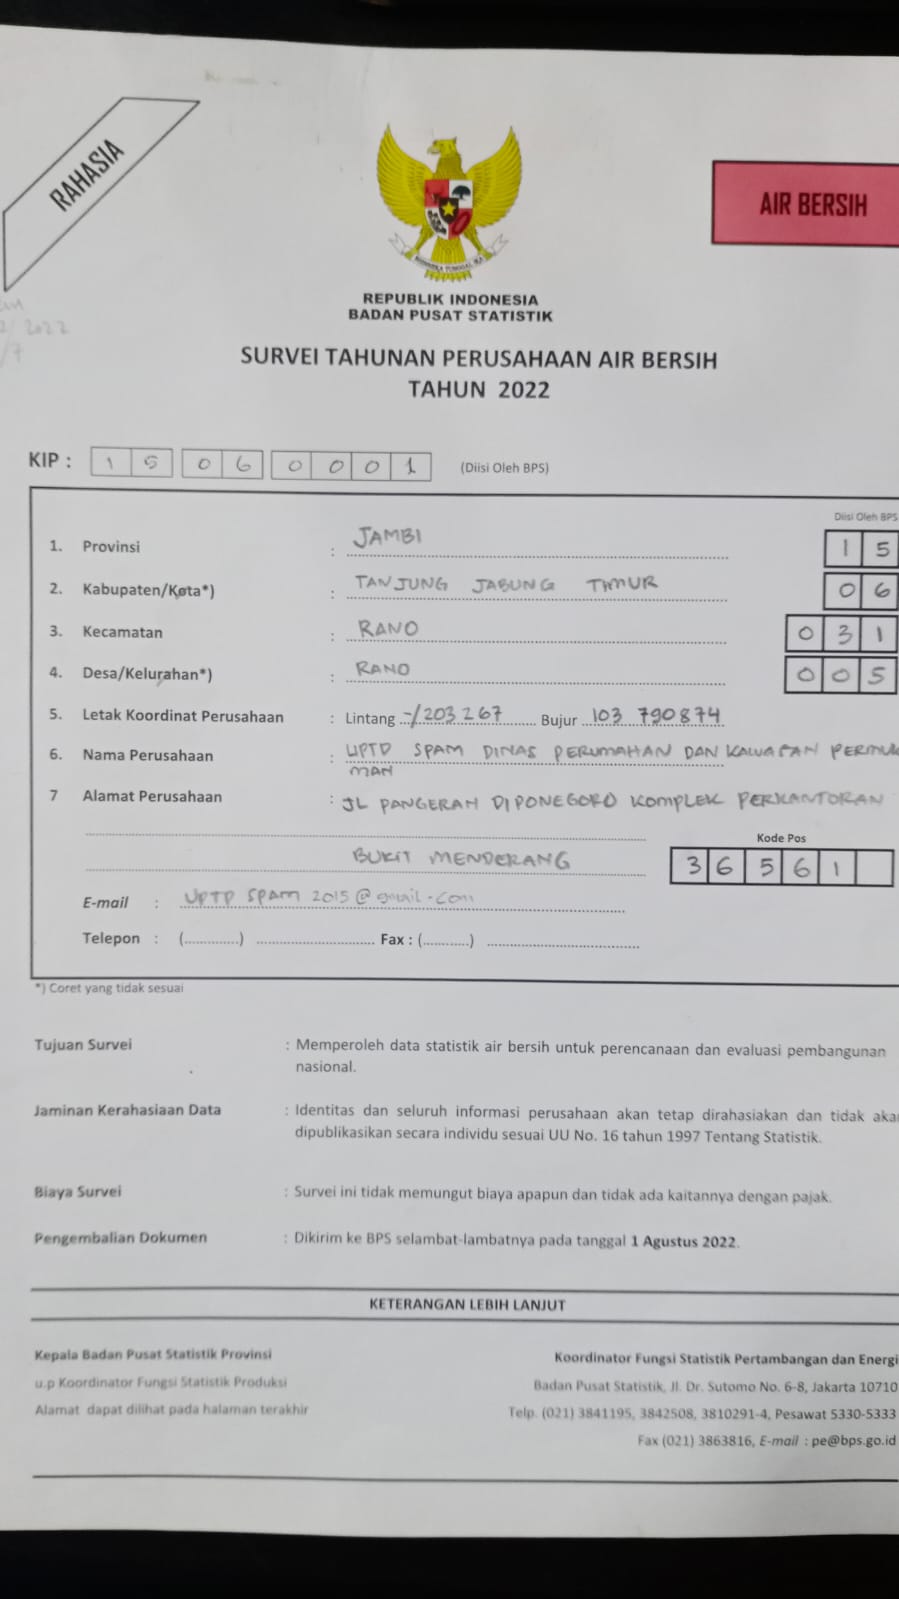 RAHASIA
AIR BERSIH
REPUBLIK INDONESIA
BADAN PUSAT STATISTIK
2022
/7
SURVEI TAHUNAN PERUSAHAAN AIR BERSIH
TAHUN 2022
KIP : 1 5 0 6 0 0 0 1 (Diisi Oleh BPS)
Diisi Oleh BPS
1. Provinsi : JAMBI 1 5
2. Kabupaten/Kota*) : TANJUNG JABUNG TIMUR 0 6
3. Kecamatan : RANO 0 3 1
4. Desa/Kelurahan*) : RANO 0 0 5
5. Letak Koordinat Perusahaan : Lintang -/203267 Bujur 103 790874
6. Nama Perusahaan : UPTD SPAM DINAS PERUMAHAN DAN KAWASAN PERMUK
MAN
7 Alamat Perusahaan : JL PANGERAN DIPONEGORO KOMPLEK PERKANTORAN
Kode Pos
BUKIT MENDERANG 3 6 5 6 1
E-mail : UPTD SPAM 2015@gmail.com
Telepon : (..............) ................................ Fax : (............) ........................................
*) Coret yang tidak sesuai
Tujuan Survei : Memperoleh data statistik air bersih untuk perencanaan dan evaluasi pembangunan
nasional.
Jaminan Kerahasiaan Data : Identitas dan seluruh informasi perusahaan akan tetap dirahasiakan dan tidak aka
dipublikasikan secara individu sesuai UU No. 16 tahun 1997 Tentang Statistik.
Biaya Survei : Survei ini tidak memungut biaya apapun dan tidak ada kaitannya dengan pajak.
Pengembalian Dokumen : Dikirim ke BPS selambat-lambatnya pada tanggal 1 Agustus 2022.
KETERANGAN LEBIH LANJUT
Kepala Badan Pusat Statistik Provinsi
u.p Koordinator Fungsi Statistik Produksi
Alamat dapat dilihat pada halaman terakhir
Koordinator Fungsi Statistik Pertambangan dan Energi
Badan Pusat Statistik, Jl. Dr. Sutomo No. 6-8, Jakarta 10710
Telp. (021) 3841195, 3842508, 3810291-4, Pesawat 5330-5333
Fax (021) 3863816, E-mail : pe@bps.go.id